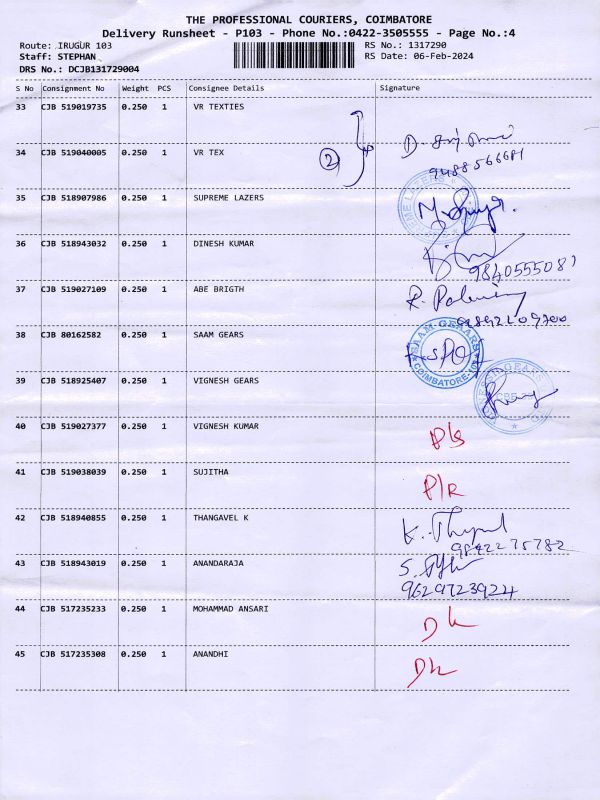 THE PROFESSIONAL COURIERS, COIMBATORE
Delivery Runsheet - P103 - Phone No.:0422-3505555 - Page No.:4
Route: IRUGUR 103 RS No.: 1317290
Staff: STEPHAN RS Date: 06-Feb-2024
DRS No.: DCJB131729004
S No Consignment No Weight PCS Consignee Details Signature
33 CJB 519019735 0.250 1 VR TEXTIES
34 CJB 519040005 0.250 1 VR TEX 2
9488566681
35 CJB 518907986 0.250 1 SUPREME LAZERS
36 CJB 518943032 0.250 1 DINESH KUMAR
9840555081
37 CJB 519027109 0.250 1 ABE BRIGTH
38 CJB 80162582 0.250 1 SAAM GEARS
SAAM GEAARS
COIMBATORE-103
39 CJB 518925407 0.250 1 VIGNESH GEARS
40 CJB 519027377 0.250 1 VIGNESH KUMAR P/s
41 CJB 519038039 0.250 1 SUJITHA P/R
42 CJB 518940855 0.250 1 THANGAVEL K
9842275782
43 CJB 518943019 0.250 1 ANANDARAJA
9629723924
44 CJB 517235233 0.250 1 MOHAMMAD ANSARI
45 CJB 517235308 0.250 1 ANANDHI